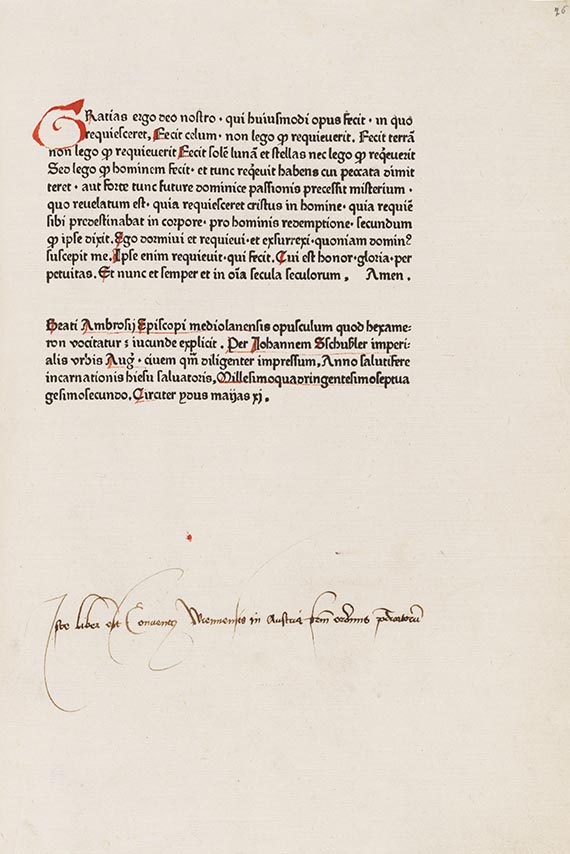 76
GRatias ergo deo nostro · qui huiusmodi opus fecit · in quo
requiesceret, Fecit celum · non lego ꝙ requieuerit. Fecit terrã
non lego ꝙ requieuerit Fecit solẽ lunã et stellas nec lego ꝙ reqͥeuerit
Sed lego ꝙ hominem fecit · et tunc reqͥeuit habens cui peccata dimit
teret · aut forte tunc future dominice passionis precessit misterium ·
quo reuelatum est · quia requiesceret cristus in homine · quia requiẽ
sibi predestinabat in corpore · pro hominis redemptione · secundum
ꝙ ipse dixit. Ego dormiui et requieui · et exsurrexi · quoniam dominꝰ
suscepit me. Ipse enim requieuit · qui fecit. Cui est honor · gloria · per
petuitas. Et nunc et semper et in oĩa secula seculorum, Amen.
Beati Ambrosij Episcopi mediolanensis opusculum quod hexame-
ron vocitatur : iucunde explicit. Per Johannem Sschußler imperi-
alis vrbis Augᵉ · ciuem qͫ diligenter impressum, Anno salutifere
incarnationis hiesu saluatoris, Millesimoquadringentesimoseptua
gesimosecundo. Circiter ydus maijas xj.
Iste liber est Conuentꝯ Wiennensis in Austria frm ordinis p̄dicatorũ